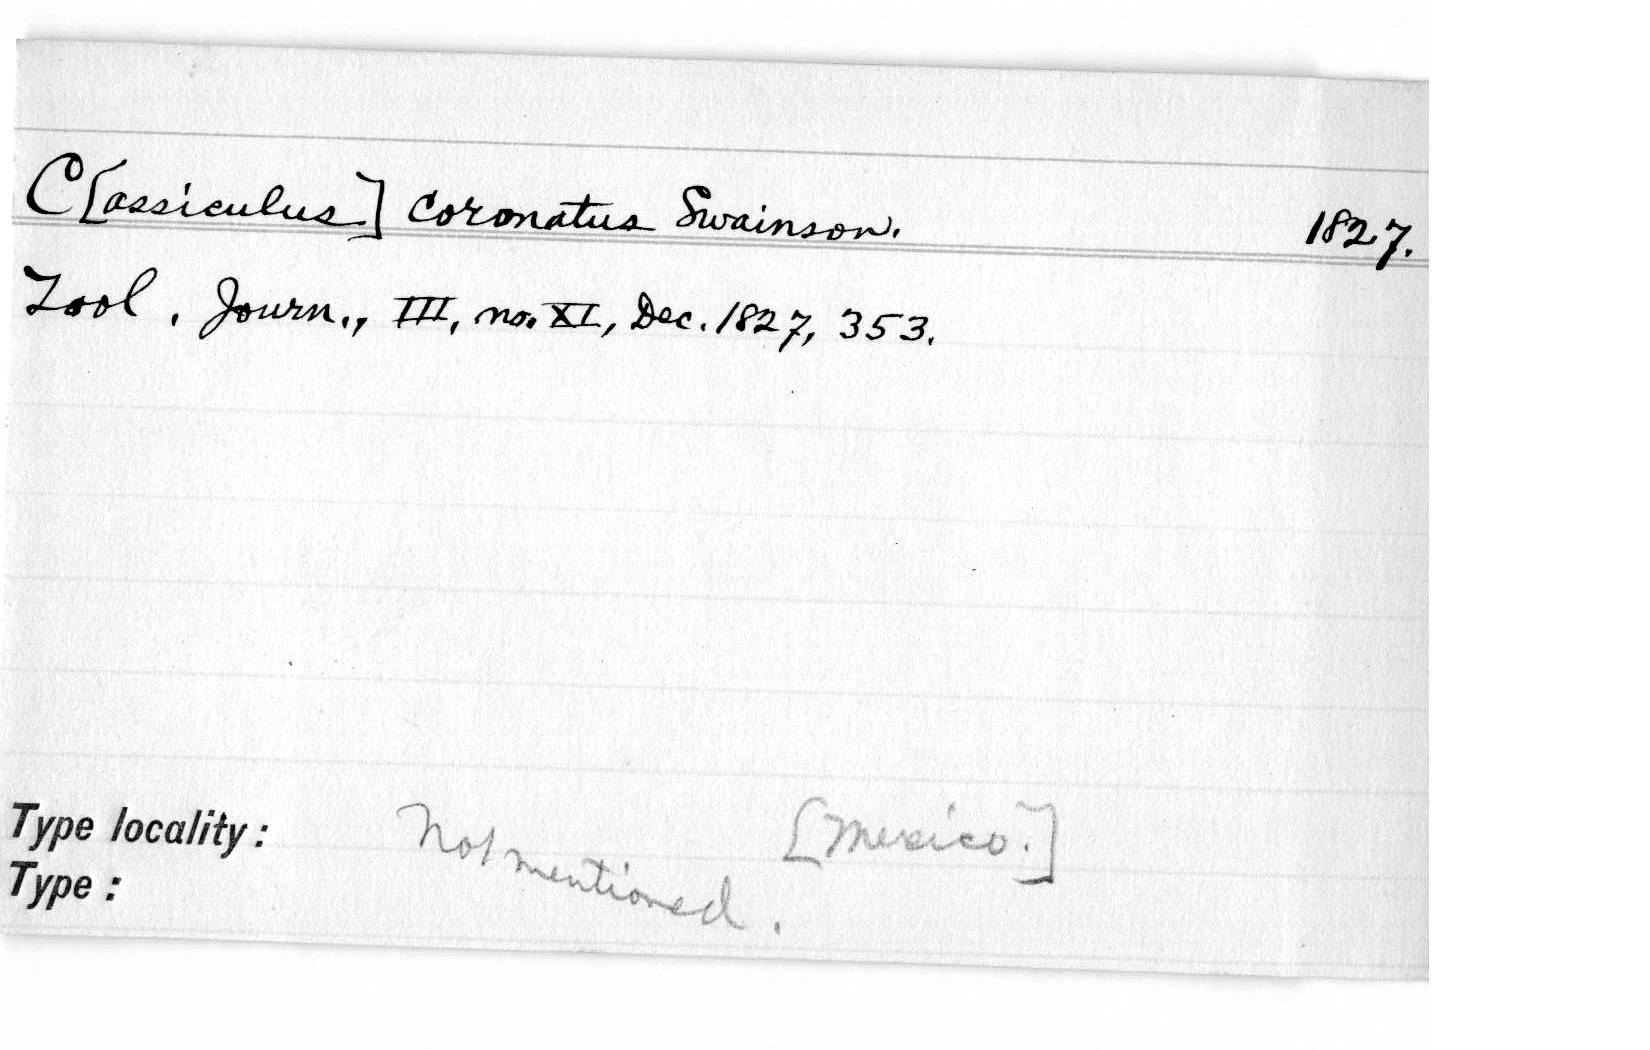 C[assiculus] coronatus Swainson. 1827.
Zool. Journ., III, no. XI, Dec. 1827, 353.
Type locality: Not mentioned. [Mexico.]
Type: